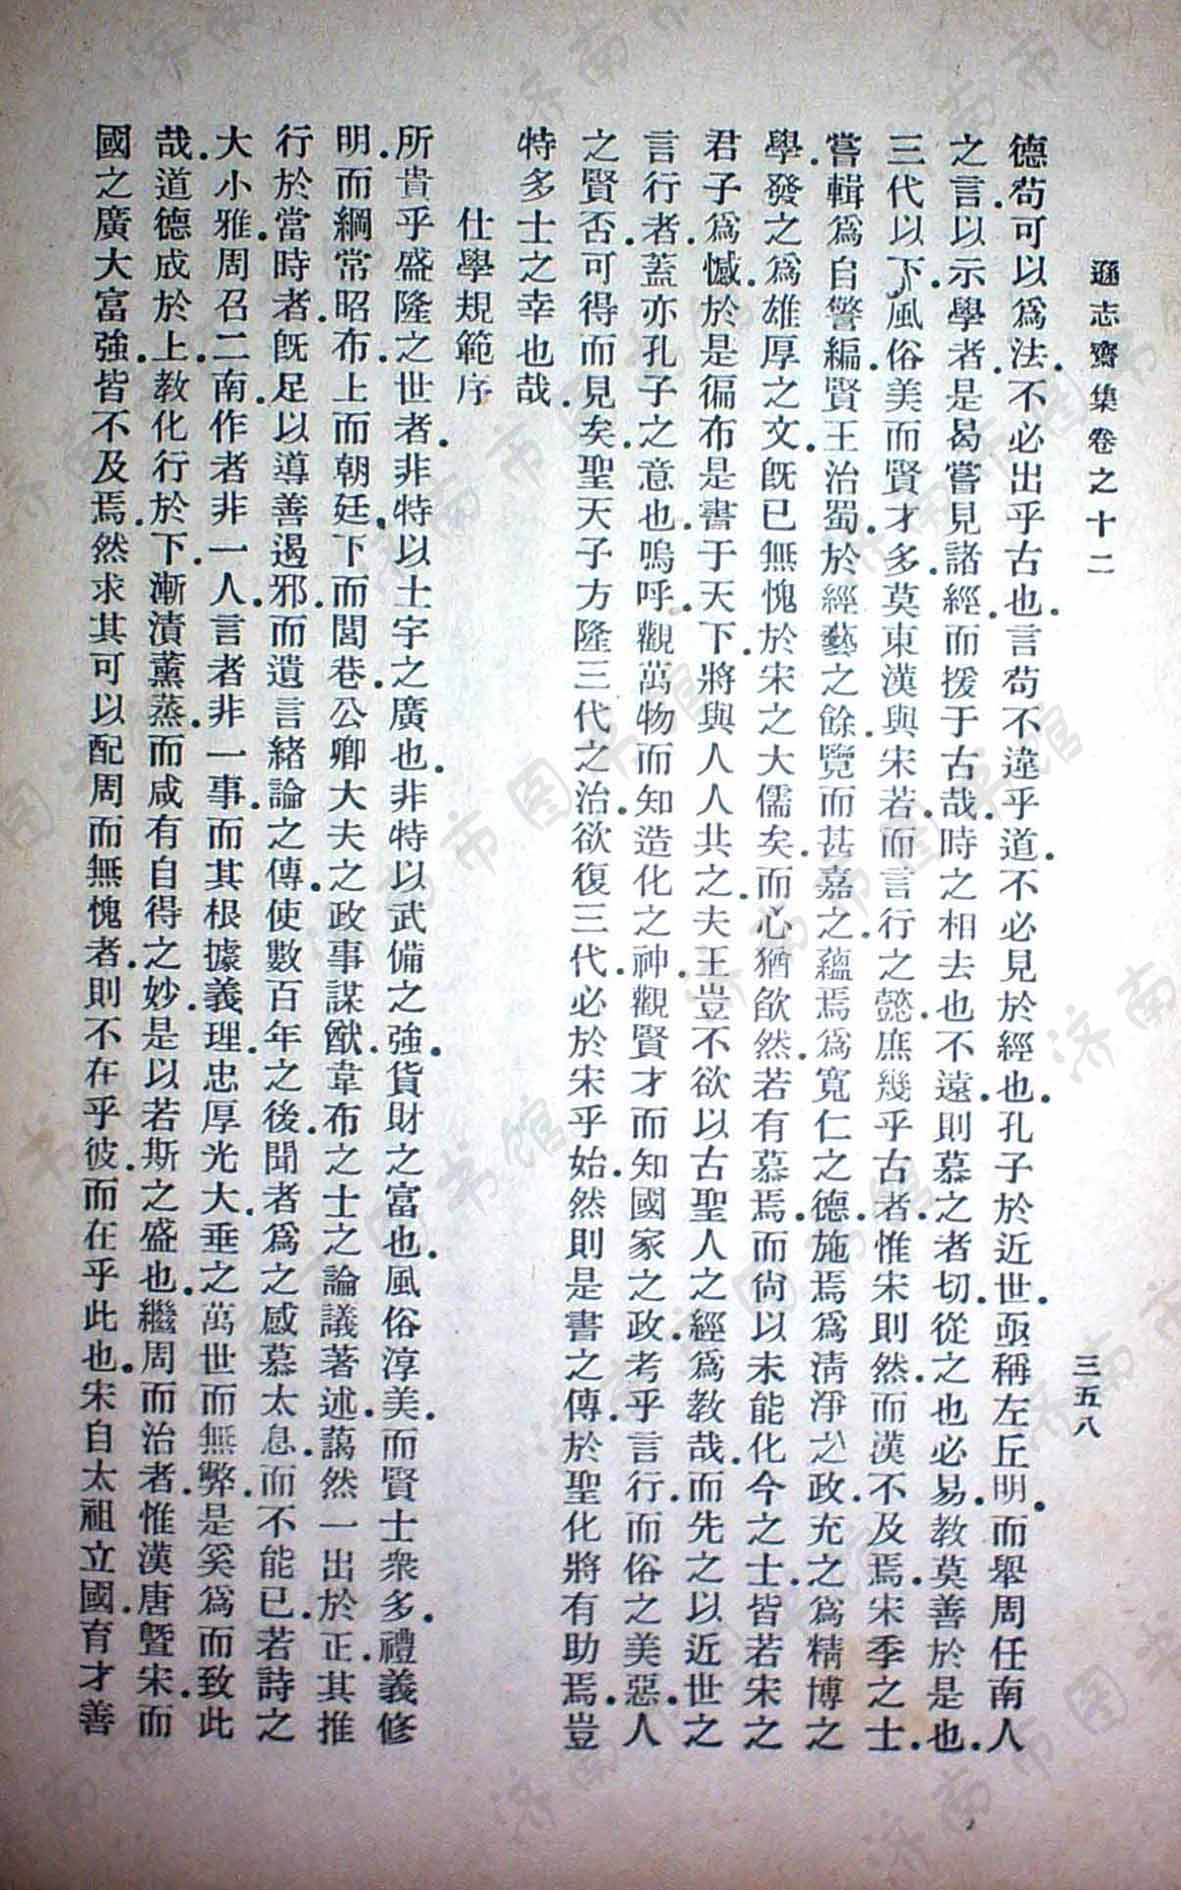 遜志齋集卷之十二
三五八
德.苟可以爲法.不必出乎古也.言苟不違乎道.不必見於經也.孔子於近世.亟稱左丘明.而舉周任南人
之言.以示學者.是曷嘗見諸經.而援于古哉.時之相去也不遠.則慕之者切.從之也必易.教莫善於是也.
三代以下.風俗美而賢才多.莫東漢與宋若.而言行之懿.庶幾乎古者.惟宋則然.而漢不及焉.宋季之士.
嘗輯爲自警編.賢王治蜀.於經藝之餘.覽而甚嘉之.蘊焉爲寬仁之德.施焉爲清淨之政.充之爲精博之
學.發之爲雄厚之文.旣已無愧於宋之大儒矣.而心猶欿然.若有慕焉.而尙以未能化今之士.皆若宋之
君子爲憾.於是徧布是書于天下.將與人人共之.夫王豈不欲以古聖人之經爲教哉.而先之以近世之
言行者.蓋亦孔子之意也.嗚呼.觀萬物而知造化之神.觀賢才而知國家之政.考乎言行.而俗之美惡.人
之賢否.可得而見矣.聖天子方隆三代之治.欲復三代.必於宋乎始.然則是書之傳.於聖化將有助焉.豈
特多士之幸也哉.
仕學規範序
所貴乎盛隆之世者.非特以土宇之廣也.非特以武備之強.貨財之富也.風俗淳美.而賢士衆多.禮義修
明.而綱常昭布.上而朝廷.下而閭巷.公卿大夫之政事謀猷.韋布之士之論議著述.藹然一出於正.其推
行於當時者.旣足以導善遏邪.而遺言緒論之傳.使數百年之後.聞者爲之感慕太息.而不能已.若詩之
大小雅.周召二南.作者非一人.言者非一事.而其根據義理.忠厚光大.垂之萬世而無弊.是奚爲而致此
哉.道德成於上.教化行於下.漸漬薰蒸.而咸有自得之妙.是以若斯之盛也.繼周而治者.惟漢唐曁宋.而
國之廣大富強.皆不及焉.然求其可以配周而無愧者.則不在乎彼.而在乎此也.宋自太祖立國.育才善